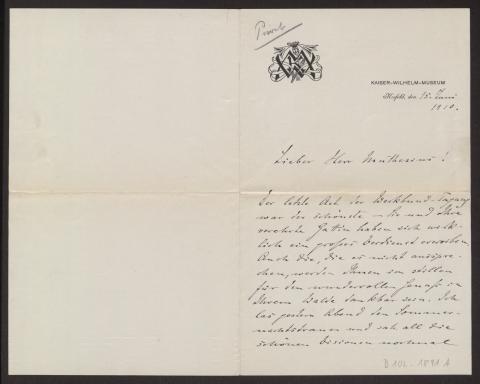 Privat
KAISER-WILHELM-MUSEUM
Krefeld, den 15. Juni
1910.
Lieber Herr Muthesius!
Der letzte Act der Werkbund-Tagung
war der schönste – Sie und Ihre
verehrte Gattin haben sich wirk-
lich ein großes Verdienst erworben.
Auch die, die es nicht ausspre-
chen, werden Ihnen im stillen
für den wundervollen Genuß in
Ihrem Walde dankbar sein. Ich
las gestern Abend den Sommer-
nachtstraum und sah all die
schönen Visionen nochmal
D 102-1891 A